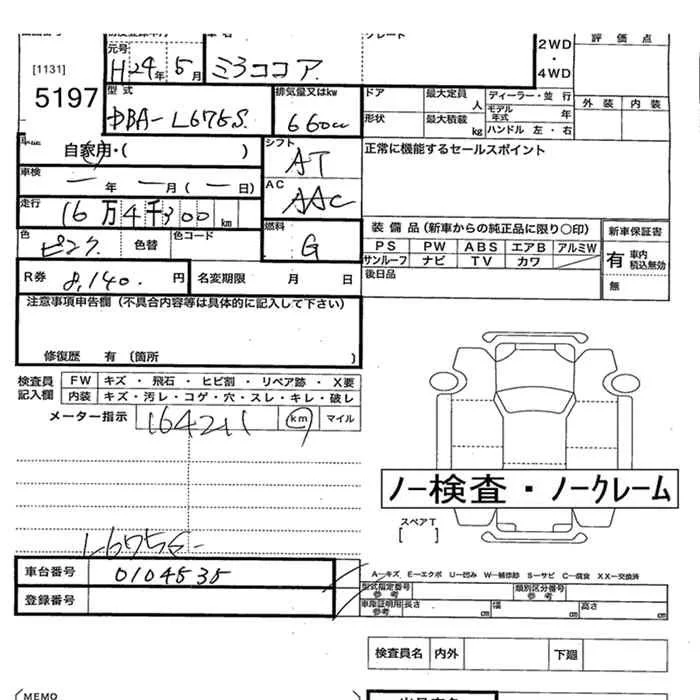 元号
H24年 5月
ミラココア
2WD
・
4WD
評 価 点
外 装 内 装
[1131]
5197
型 式
DBA-L675S
排気量又はkw
660cc
ドア
最大定員
人
ディーラー・並 行
形状
最大積載
kg
モデル年式
年
ハンドル 左・右
自家用・( )
シフト
AT
正常に機能するセールスポイント
車検
ー年 ー月(ー日)
AC
AAC
走行
16万4千300km
燃料
G
色
ピンク
色替
色コード
装 備 品 (新車からの純正品に限り〇印)
新車保証書
PS PW ABS エアB アルミW
サンルーフ ナビ TV カワ
有 車内積込無効
無
後日品
R券 8,140. 円
名変期限 月 日
注意事項申告欄 (不具合内容等は具体的に記入して下さい)
修復歴 有 (箇所 )
検査員
記入欄
FW キズ ・ 飛石 ・ ヒビ割 ・ リペア跡 ・ X要
内装 キズ・汚レ・コゲ・穴・スレ・キレ・破レ
メーター指示 164211 km マイル
ノー検査・ノークレーム
スペアT
[ ]
L675S-
車台番号 0104535
登録番号
A－キズ E－エクボ U－凹み W－補修跡 S－サビ C－腐食 XX－交換済
型式指定番号
参 考
類別区分番号
参 考
車庫証明用
参 考
長さ cm 幅 cm 高さ cm
検査員名 内外 下廻
MEMO